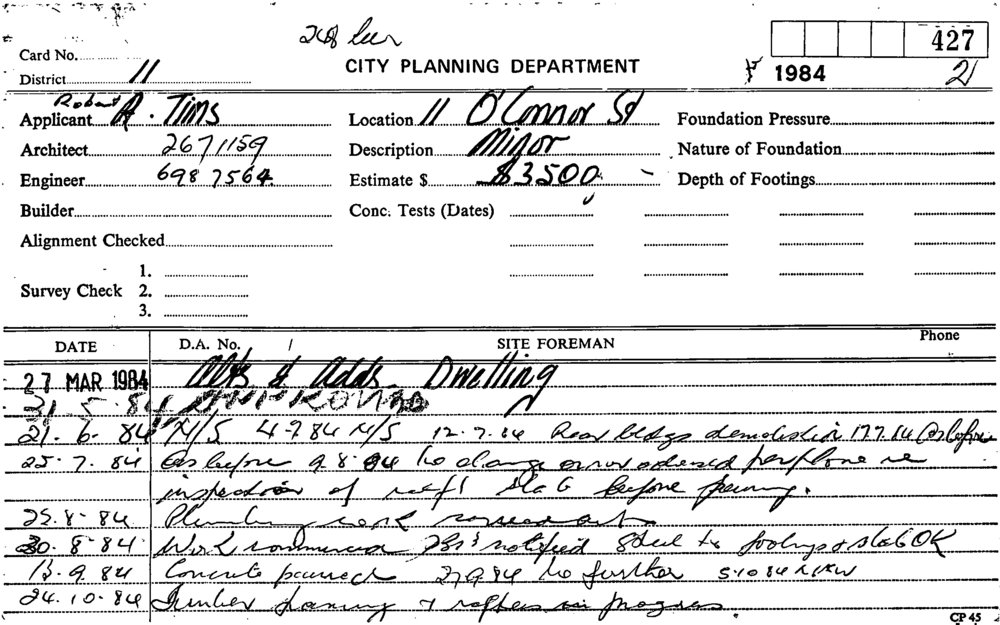 Card No.
CITY PLANNING DEPARTMENT
427
District 11
1984
21
Robert
Applicant R. Tims
Location 11 O'Connor St
Foundation Pressure
Architect 267 1159
Description Minor
Nature of Foundation
Engineer 698 7564
Estimate $ $3500
Depth of Footings
Builder
Conc. Tests (Dates)
Alignment Checked
1.
Survey Check 2.
3.
DATE D.A. No. / SITE FOREMAN Phone
27 MAR 1984 Alts & Adds Dwelling
31-5-84 APPROVED
21.6.84 N/S 4.7.84 N/S 12.7.84 Rear bldgs demolished 17.7.84 As before
25.7.84 As before 9.8.84 No change owner advised per phone re
inspection of reinf slab before pouring.
25.8.84 Plumbing work carried out
30.8.84 Work commenced notified Steel to footings & slab OK
13.9.84 Concrete poured 27.9.84 No further 5.10.84
24.10.84 Timber framing & rafters in progress.
CP 45